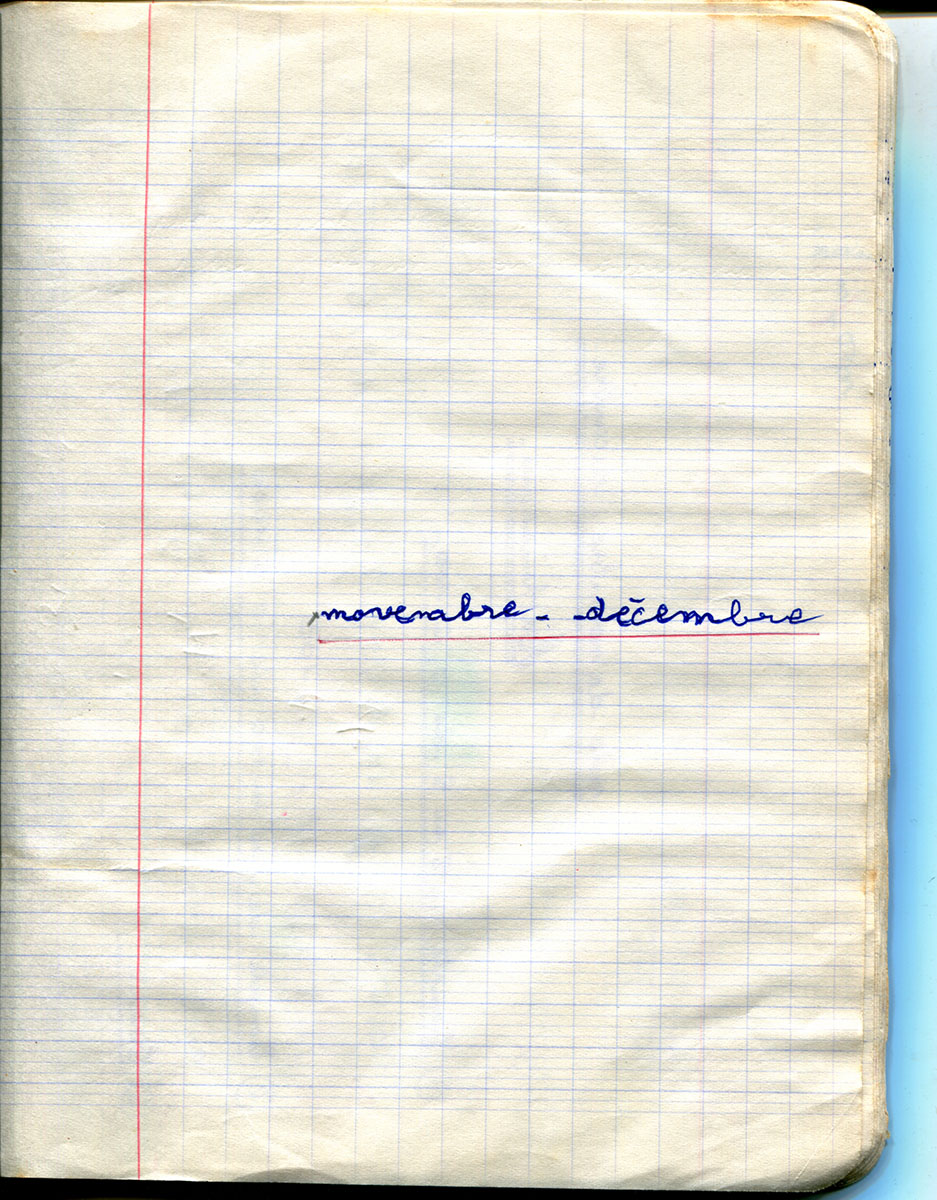 novembre - décembre